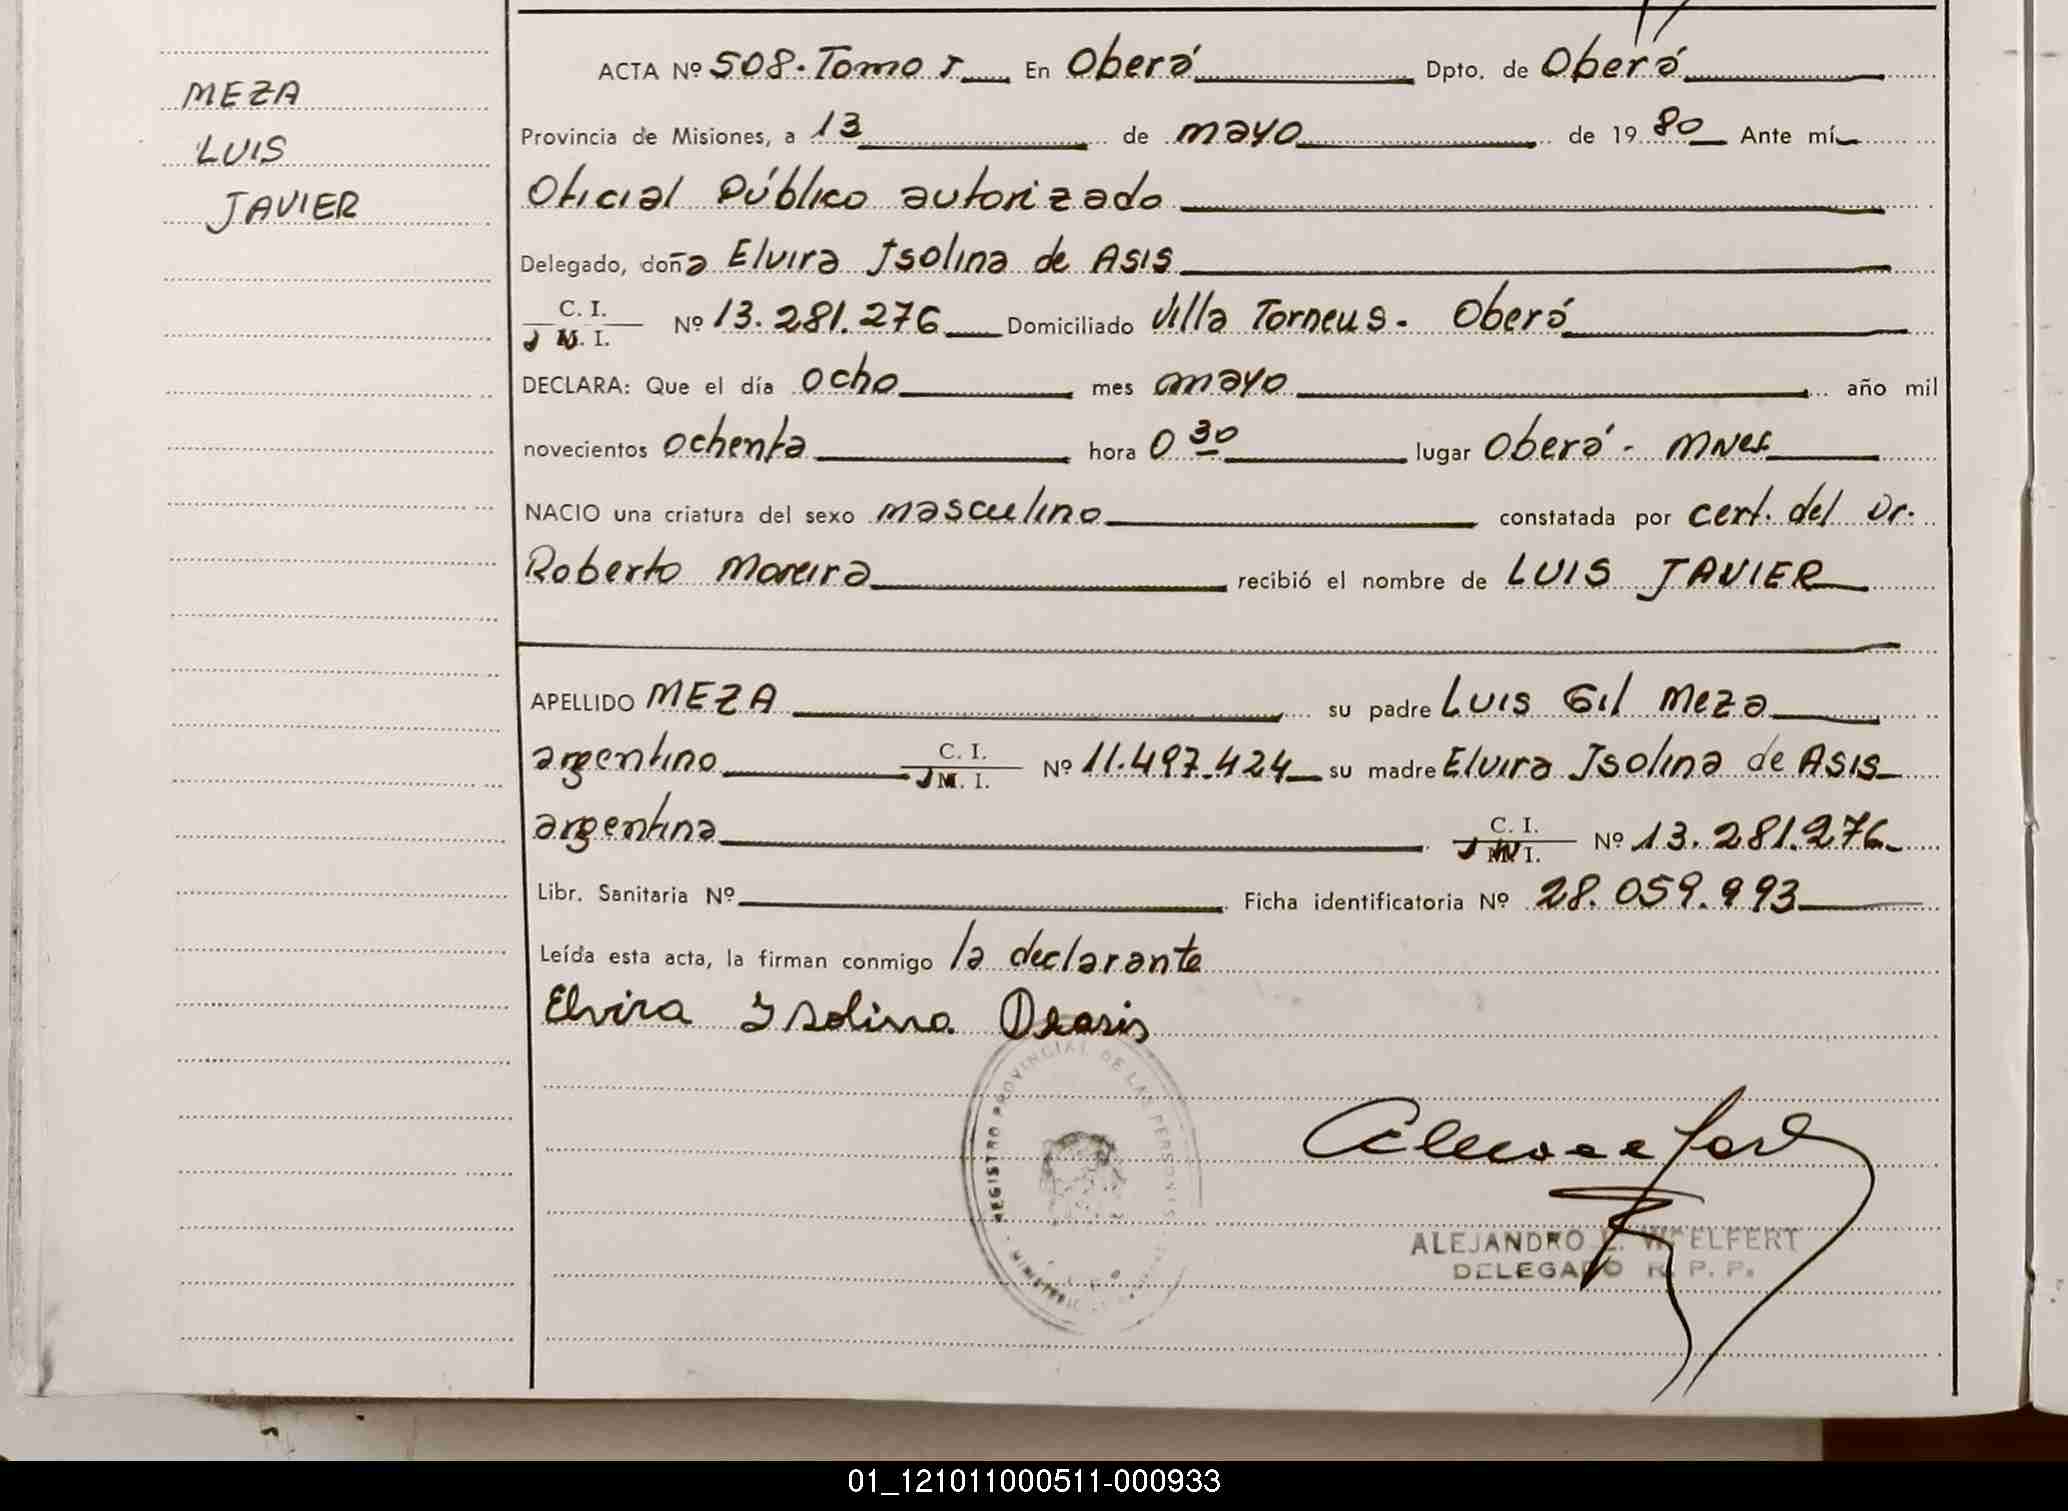 MEZA
LUIS
JAVIER
ACTA Nº 508. Tomo I En Oberá Dpto. de Oberá
Provincia de Misiones, a 13 de mayo de 1980 Ante mí
Oficial Público autorizado
Delegado, doña Elvira Isolina de Asis
C. I.
M. I. Nº 13.281.276 Domiciliado Villa Torneus - Oberá
DECLARA: Que el día ocho mes mayo año mil
novecientos ochenta hora 0 30 lugar Oberá - Mnes
NACIO una criatura del sexo masculino constatada por cert. del Dr.
Roberto Moreira recibió el nombre de LUIS JAVIER
APELLIDO MEZA su padre Luis Gil Meza
argentino C. I. M. I. Nº 11.497.424 su madre Elvira Isolina de Asis
argentina C. I. M. I. Nº 13.281.276
Libr. Sanitaria Nº Ficha identificatoria Nº 28.059.993
Leída esta acta, la firman conmigo la declarante
Elvira Isolina Deasis
REGISTRO PROVINCIAL DE LAS PERSONAS
ALEJANDRO WOELFERT
DELEGADO R. P. P.
01_121011000511-000933